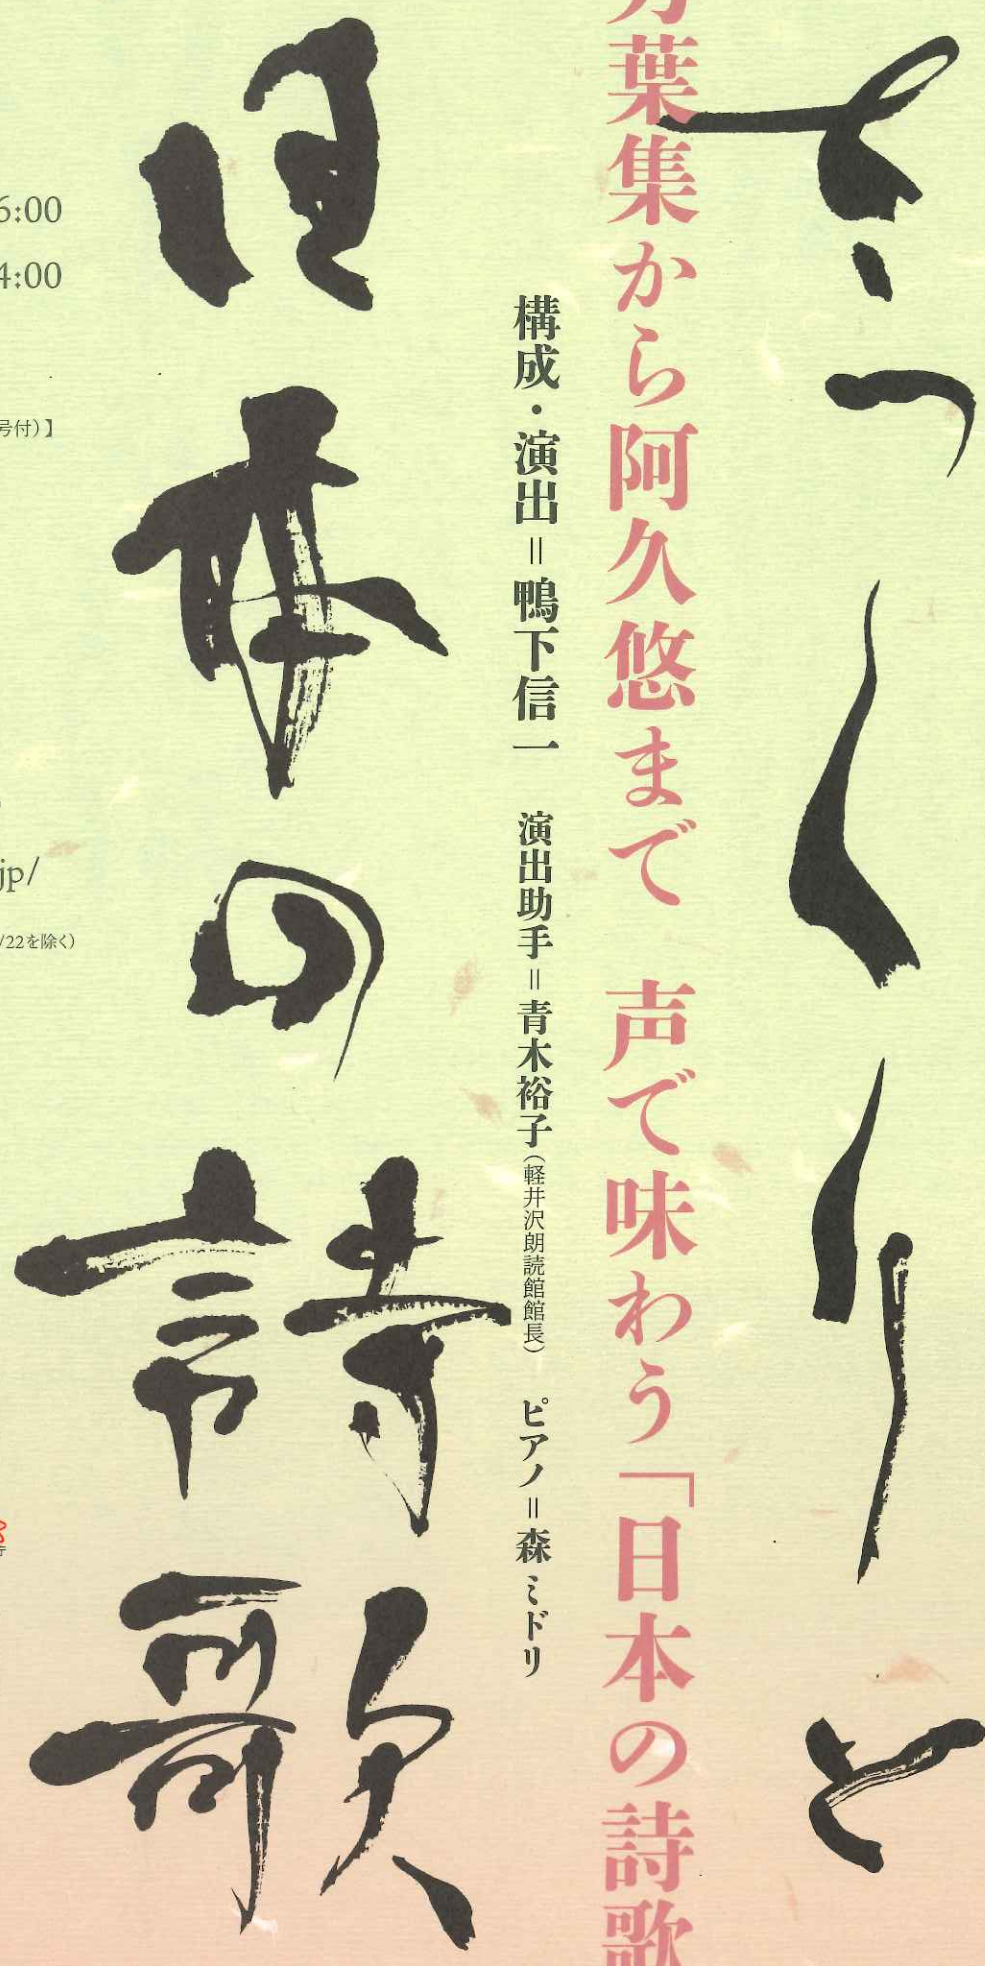 さっくりと
万葉集から阿久悠まで　声で味わう「日本の詩歌
構成・演出＝鴨下信一　演出助手＝青木裕子（軽井沢朗読館館長）　ピアノ＝森ミドリ
日本の詩歌
6:00
4:00
号付）】
jp/
/22を除く）